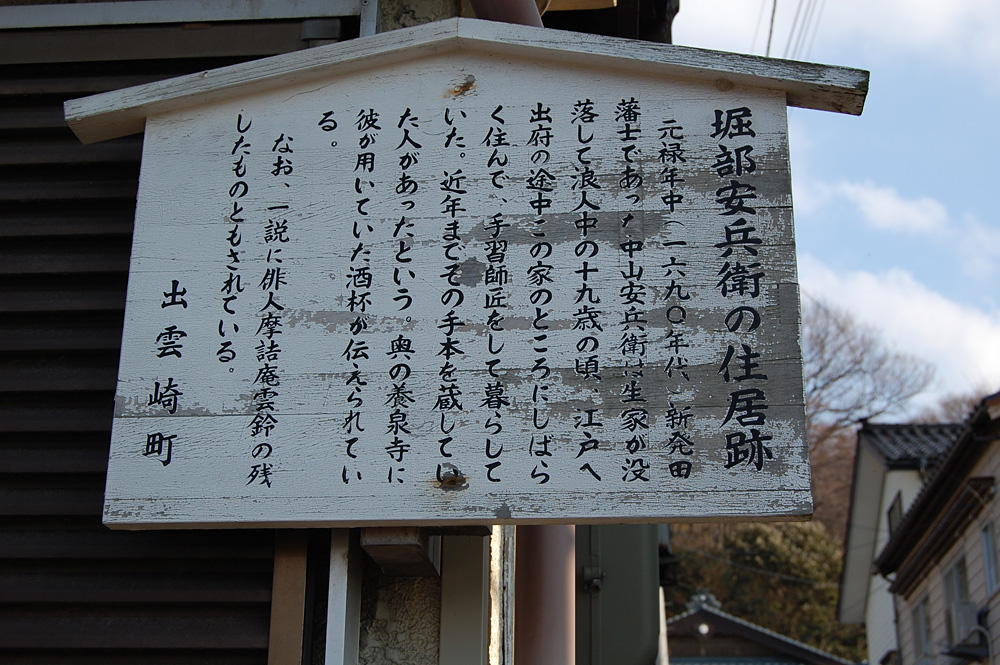 堀部安兵衛の住居跡
元禄年中(一六九〇年代)新発田
藩士であった中山安兵衛は生家が没
落して浪人中の十九歳の頃、江戸へ
出府の途中この家のところにしばら
く住んで、手習師匠をして暮らして
いた。近年までその手本を蔵してい
た人があったという。奥の養泉寺に
彼が用いていた酒杯が伝えられてい
る。
なお、一説に俳人摩詰庵雲鈴の残
したものともされている。
出雲崎町